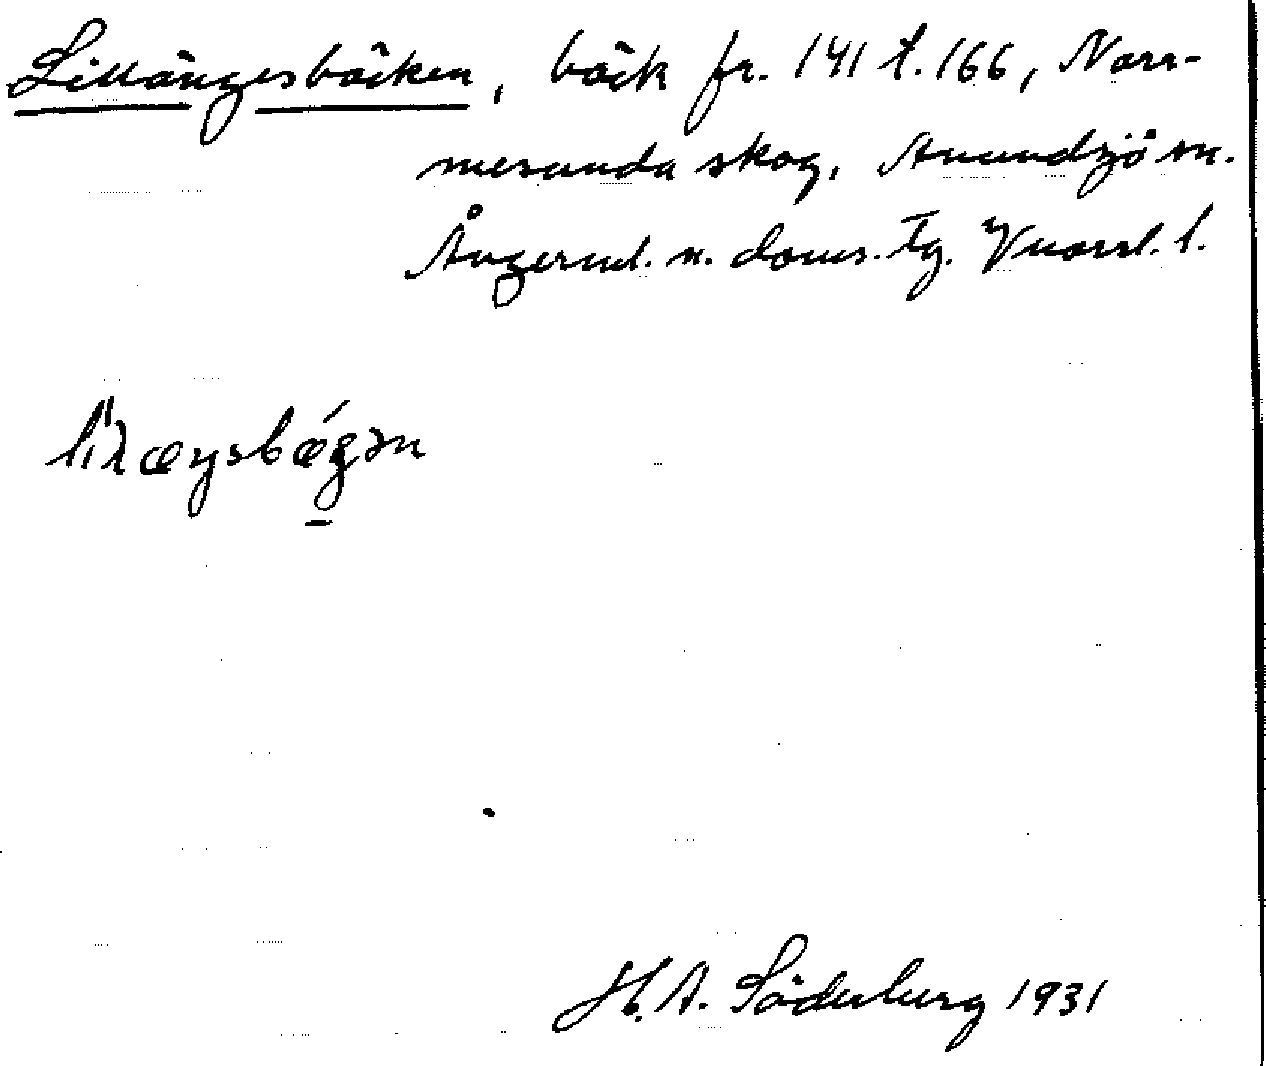 Lillängesbäcken, bäck fr. 141 t. 166, Norr-
mesunda skog, Anundsjö sn.
Ångerml. n. doms. Tg. Vnorrl. l.
H. A. Söderberg 1931